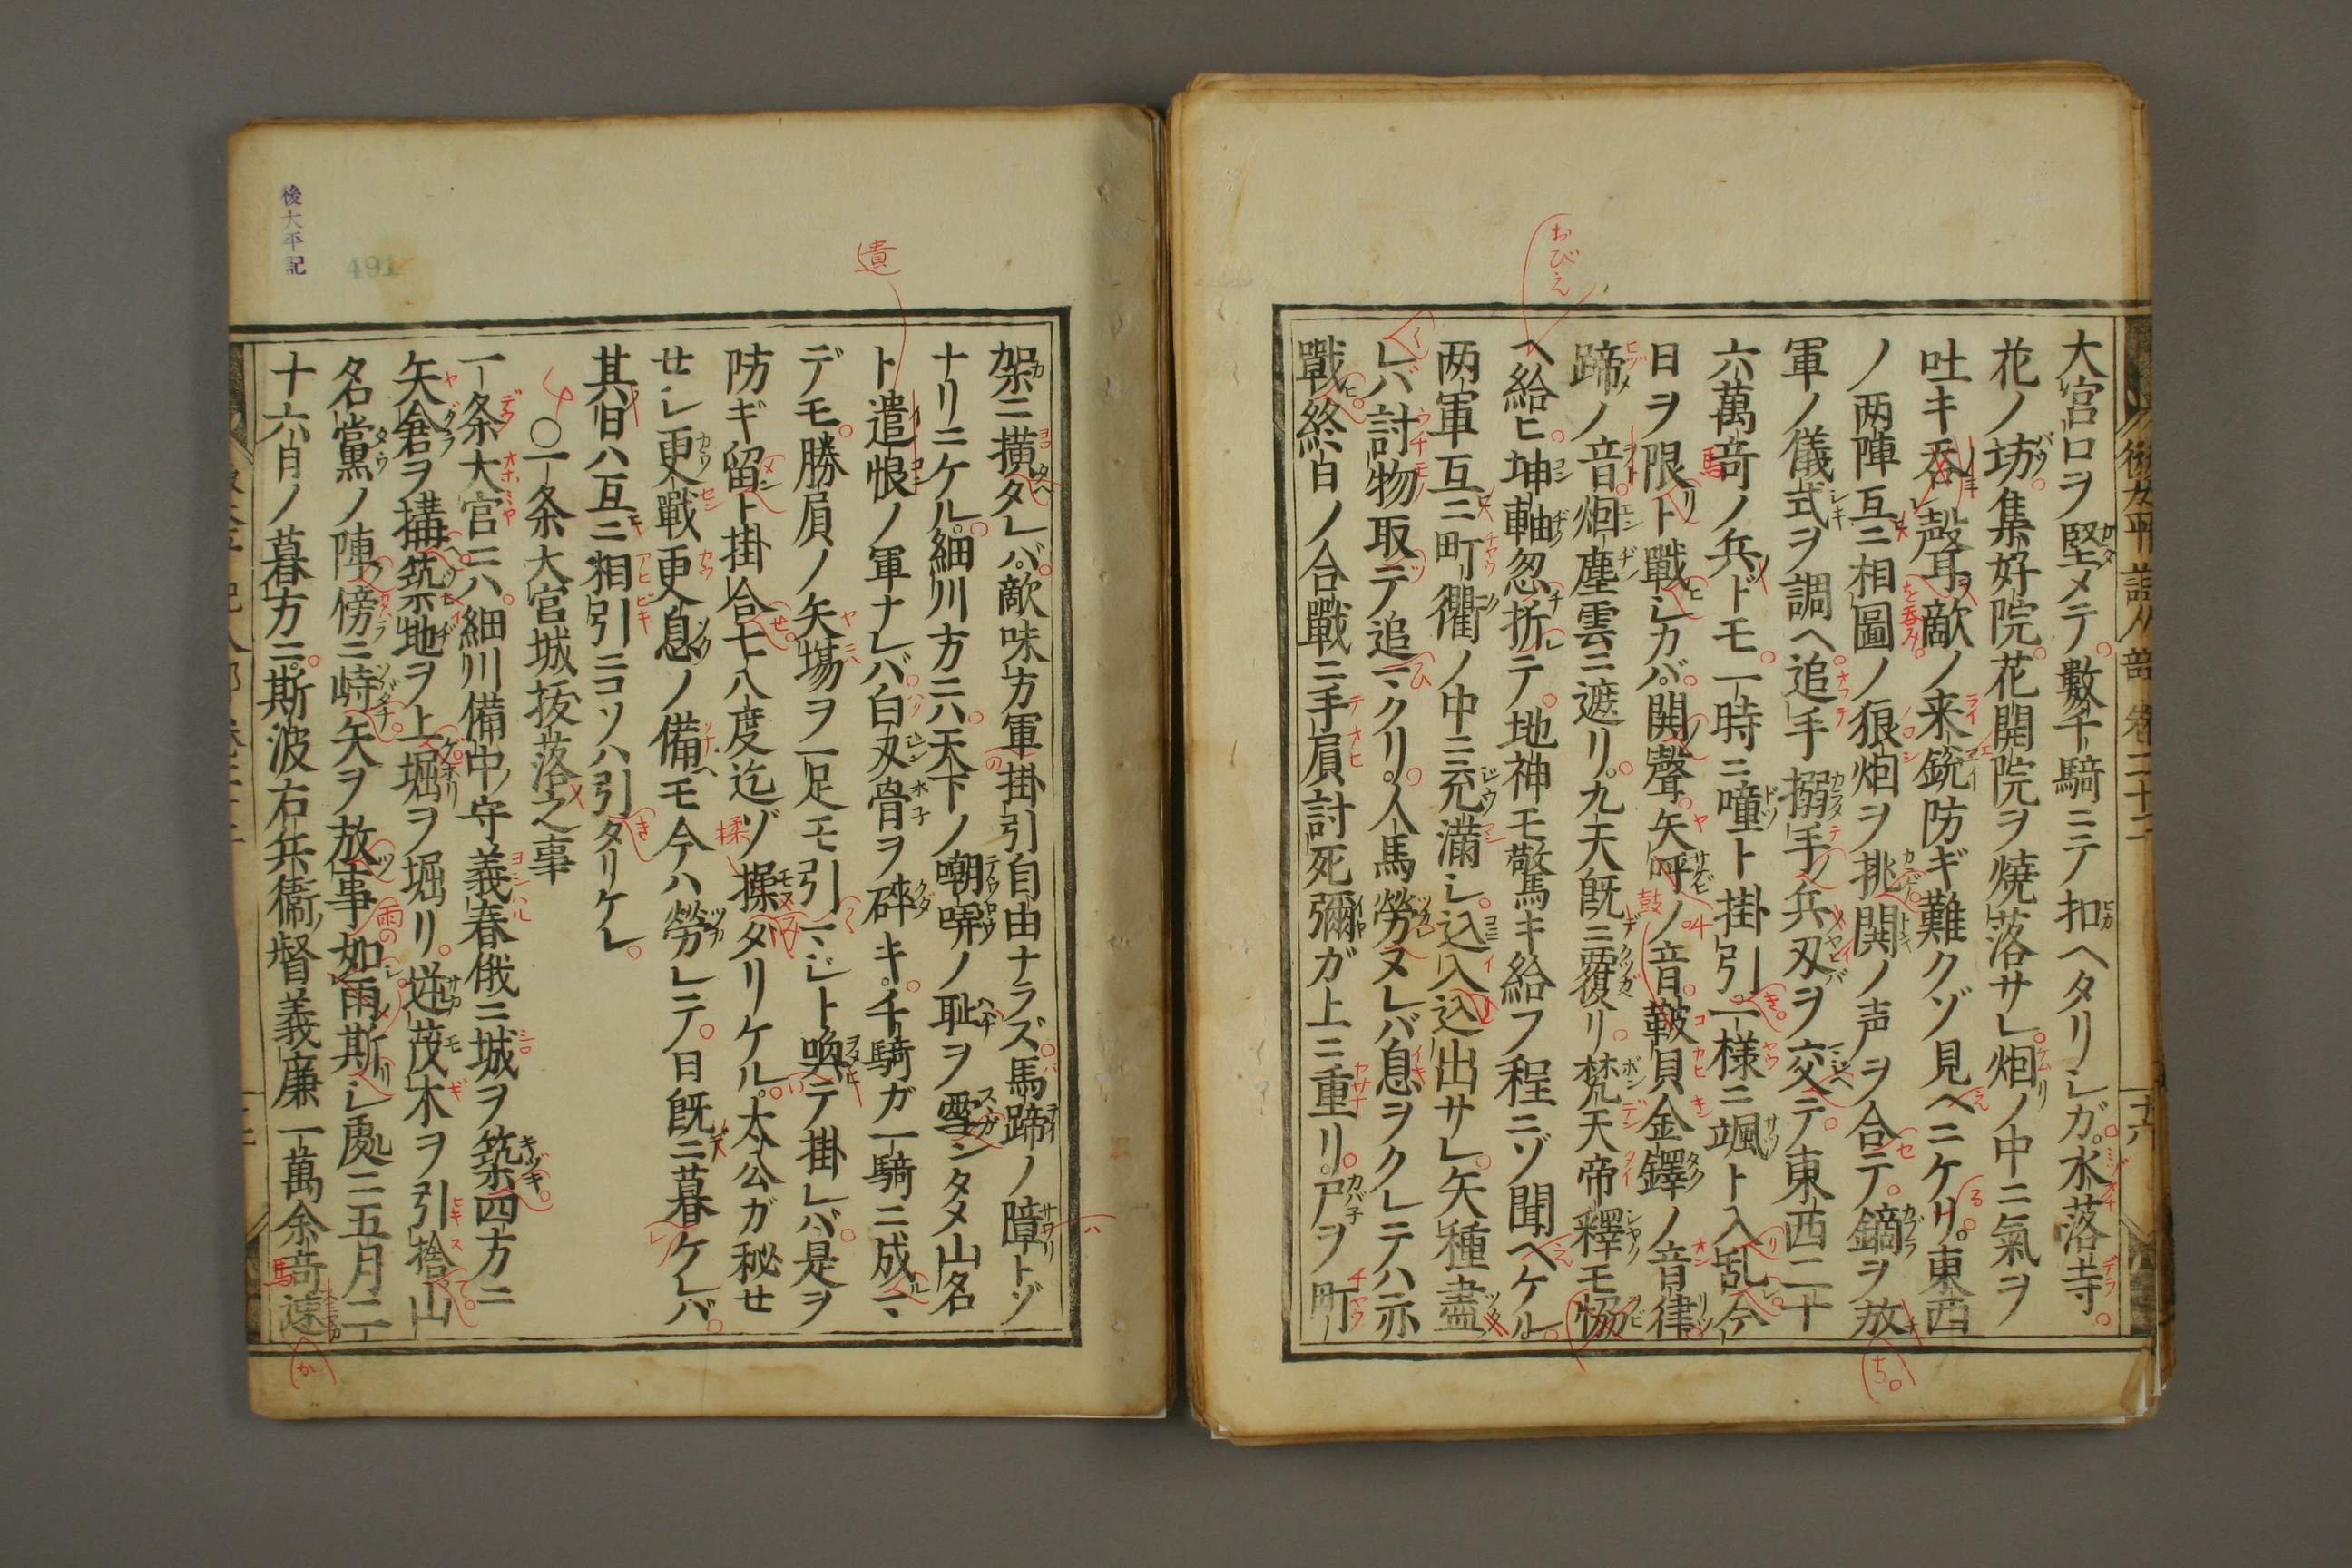 大宮口ヲ堅メテ數千騎ニテ扣ヘタリシガ水落寺
花ノ坊集好院花開院ヲ焼落サレ烟ノ中ニ氣ヲ
吐キ呑聲敵ノ来銳防ギ難クゾ見ヘニケリ東西
ノ两陣互ニ相圖ノ狼烟ヲ挑鬨ノ声ヲ合テ鏑ヲ放
軍ノ儀式ヲ調ヘ追手搦手兵刃ヲ交テ東西二十
六萬竒ノ兵ドモ一時ニ噇ト掛引一様ニ颯ト入乱今
日ヲ限ト戰シカバ鬨聲矢呼ノ音鞁貝金鐸ノ音律
蹄ノ音烟塵雲ニ遮リ九天既ニ覆リ梵天帝釋モ恊
ヘ給ヒ坤軸忽折テ地神モ驚キ給フ程ニゾ聞ヘケル
两軍互ニ町衢ノ中ニ充満シ込入込出サレ矢種盡
レバ討物取テ追マクリ人馬勞ヌレバ息ヲクレテハ亦
戰終日ノ合戰ニ手負討死彌ガ上ニ重リ尸ヲ町
おびえ
後太平記
491
遺
架ニ横タレバ敵味方軍掛引自由ナラズ馬蹄ノ障トゾ
ナリニケル細川方ニハ天下ノ嘲哢ノ耻ヲ雪ンタメ山名
ト遣恨ノ軍ナレバ白刄骨ヲ碎キ千騎ガ一騎ニ成マ
デモ勝負ノ矢場ヲ一足モ引マジト喚テ掛レバ是ヲ
防ギ留ト掛合七八度迄ゾ操ダリケル太公ガ秘せ
せシ更戰更息ノ備モ今ハ勞レテ日既ニ暮ケレバ
其日ハ互ニ相引ニコソハ引タリケレ
○一条大宮城抜落之事
一条大宮ニハ細川備中守義春俄ニ城ヲ築四方ニ
矢倉ヲ搆築地ヲ上堀ヲ堀リ逆茂木ヲ引捨山
名黨ノ陣傍ニ峙矢ヲ放事如雨斯シ處ニ五月二
十六日ノ暮方ニ斯波右兵衞督義廉一萬余竒速